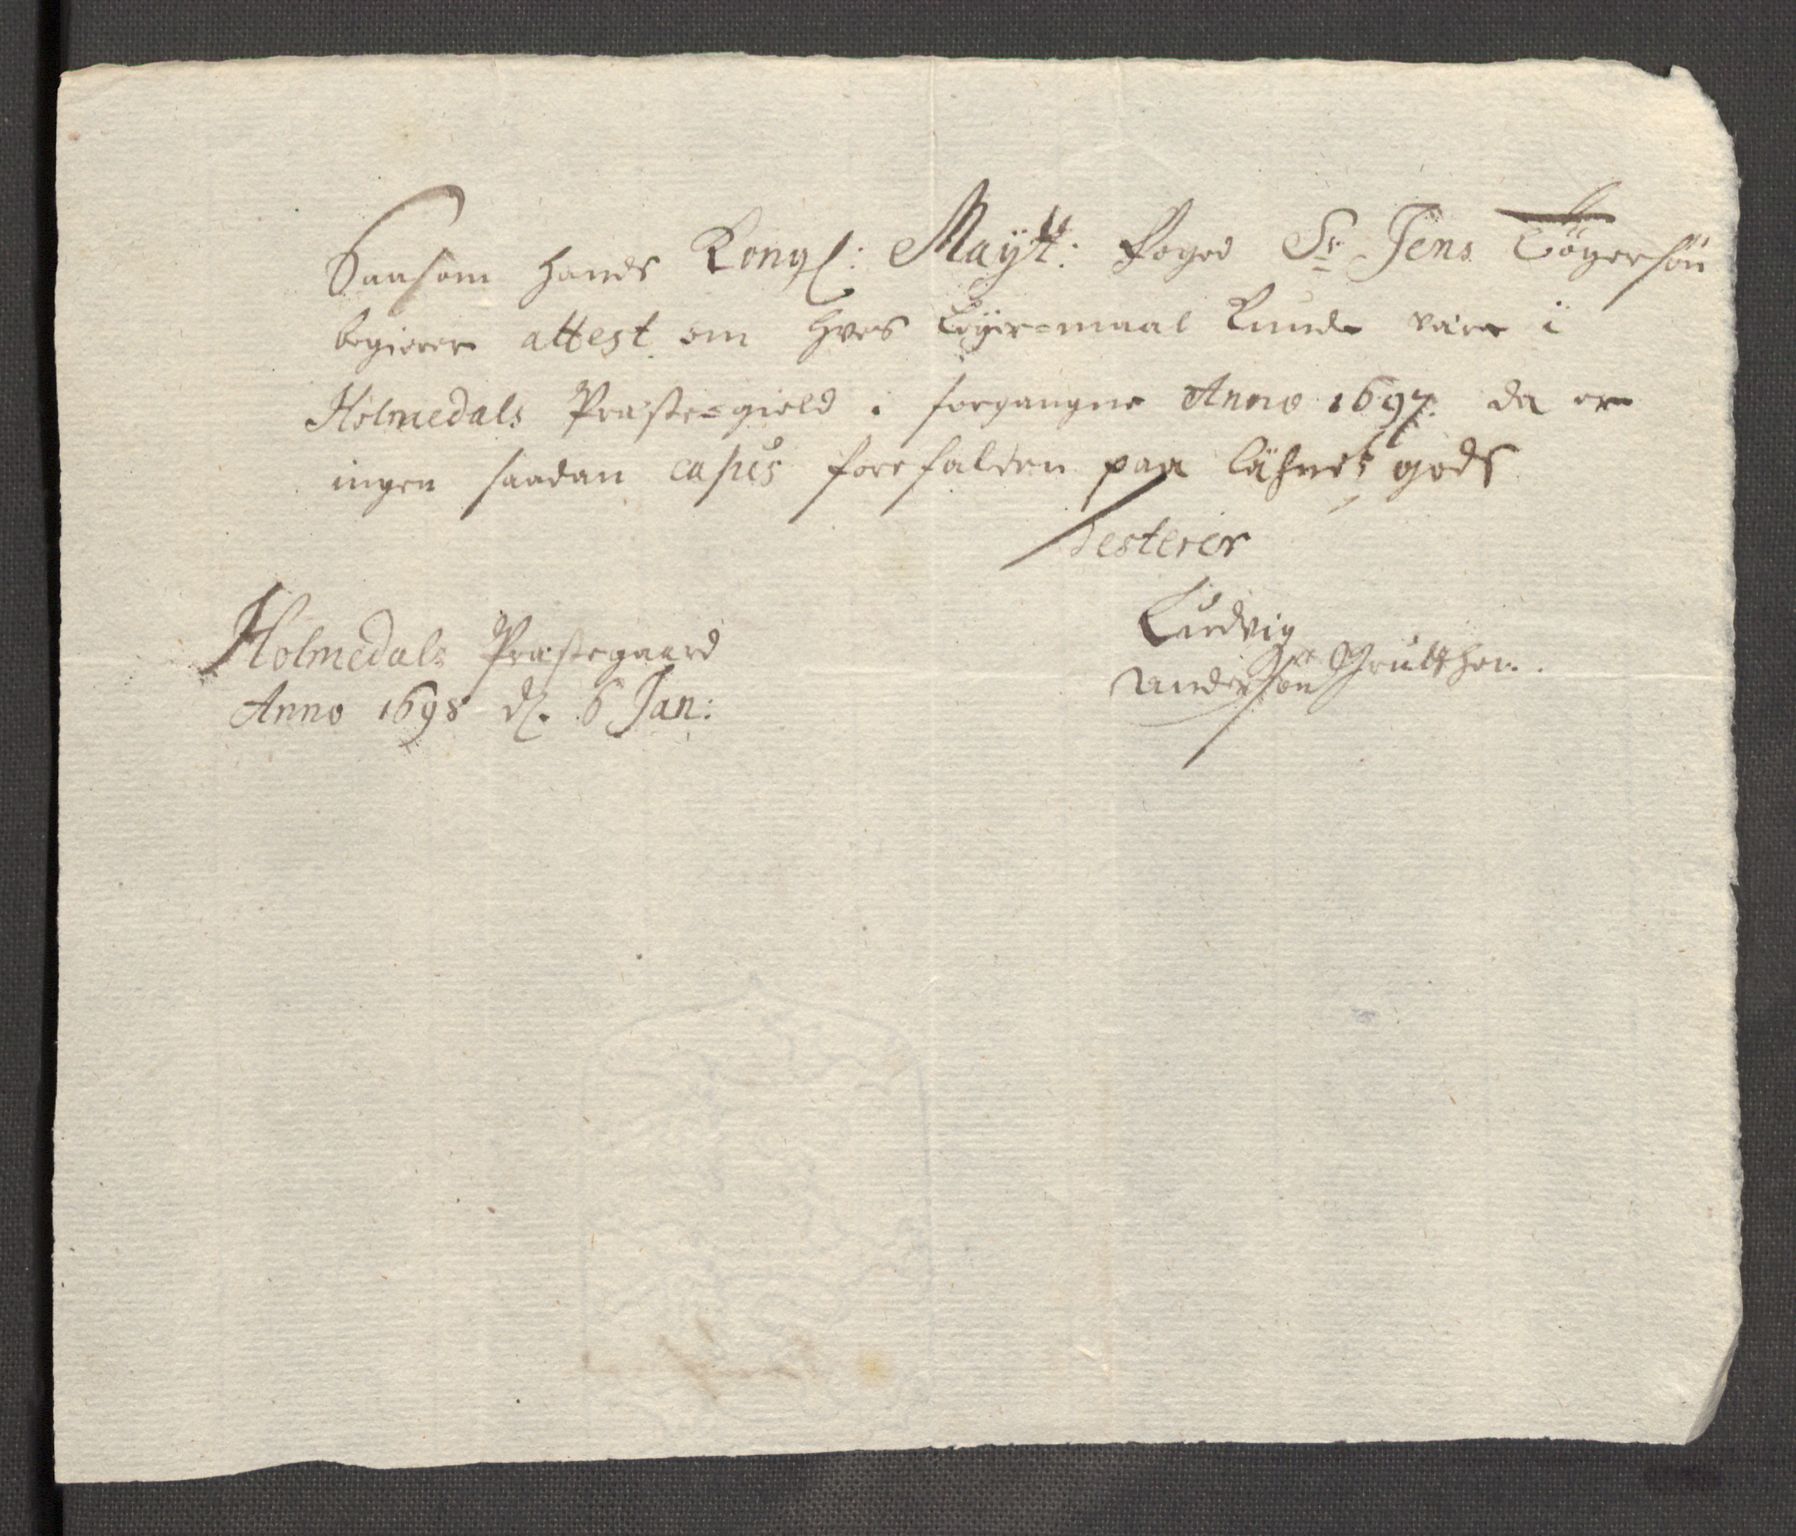 Saasom hands Kongl: Maÿtt: Foged Sr Jens Tøgersøn
begierer attest om hves Leÿer-maal kunde være i
Holmedals Præste-gield i forgangne Anno 1697. da er
ingen saadan casus forefalden paa Lähnetz gods
Testerer
Holmedals Præstegaard
Anno 1698 d. 6 Jan:
Ludvig
Andersøn